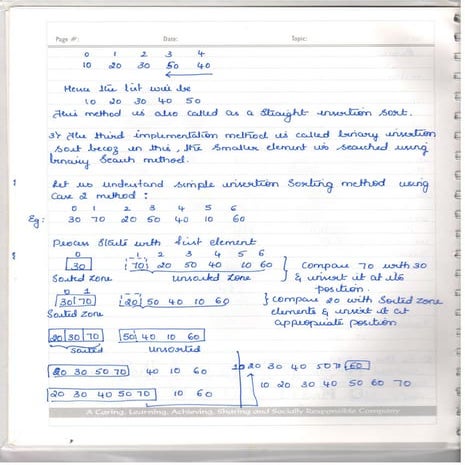 Page #: Date: Topic:
0 1 2 3 4
10 20 30 50 40
Hence the list will be
10 20 30 40 50
This method is also called as a straight insertion sort.
3) The third implementation method is called binary insertion
sort becoz in this, the smaller element is searched using
binary search method.
Let us understand simple insertion sorting method using
Case 2 method :
0 1 2 3 4 5 6
Eg: 30 70 20 50 40 10 60
Process starts with first element
0 1 2 3 4 5 6
30 70 20 50 40 10 60 } Compare 70 with 30
Sorted Zone Unsorted Zone & insert it at its
position.
0 1
30 70 20 50 40 10 60 } Compare 20 with Sorted Zone
Sorted Zone elements & insert it at
appropriate position
20 30 70 50 40 10 60
Sorted Unsorted
20 30 50 70 40 10 60
20 30 40 50 70 10 60
10 20 30 40 50 70 60
10 20 30 40 50 60 70
A Caring, Learning, Achieving, Sharing and Socially Responsible Company